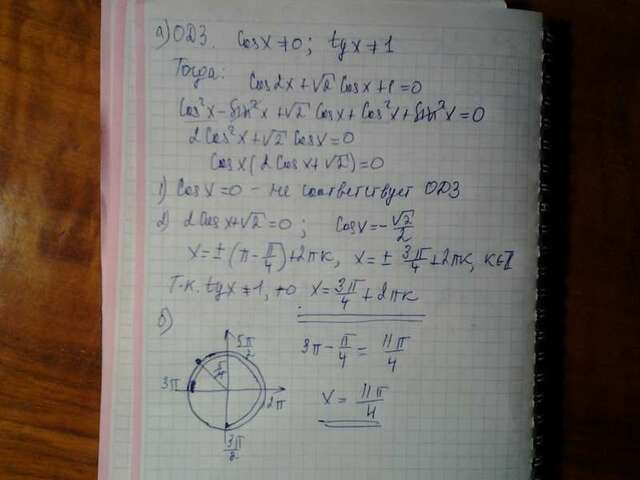 а) ОДЗ. Cosx ≠ 0; tgx ≠ 1
Тогда: Cos2x + √2 Cosx + 1 = 0
Cos²x - Sin²x + √2 Cosx + Cos²x + Sin²x = 0
2Cos²x + √2 Cosx = 0
Cosx(2Cosx + √2) = 0
1) Cosx = 0 - не соответствует ОДЗ
2) 2Cosx + √2 = 0; Cosx = -√2/2
x = ±(π - π/4) + 2πк, x = ± 3π/4 + 2πк, к∈Z
Т.к. tgx ≠ 1, то x = 3π/4 + 2πк
б)
5π/2
3π
π/4
2π
3π/2
3π - π/4 = 11π/4
x = 11π/4